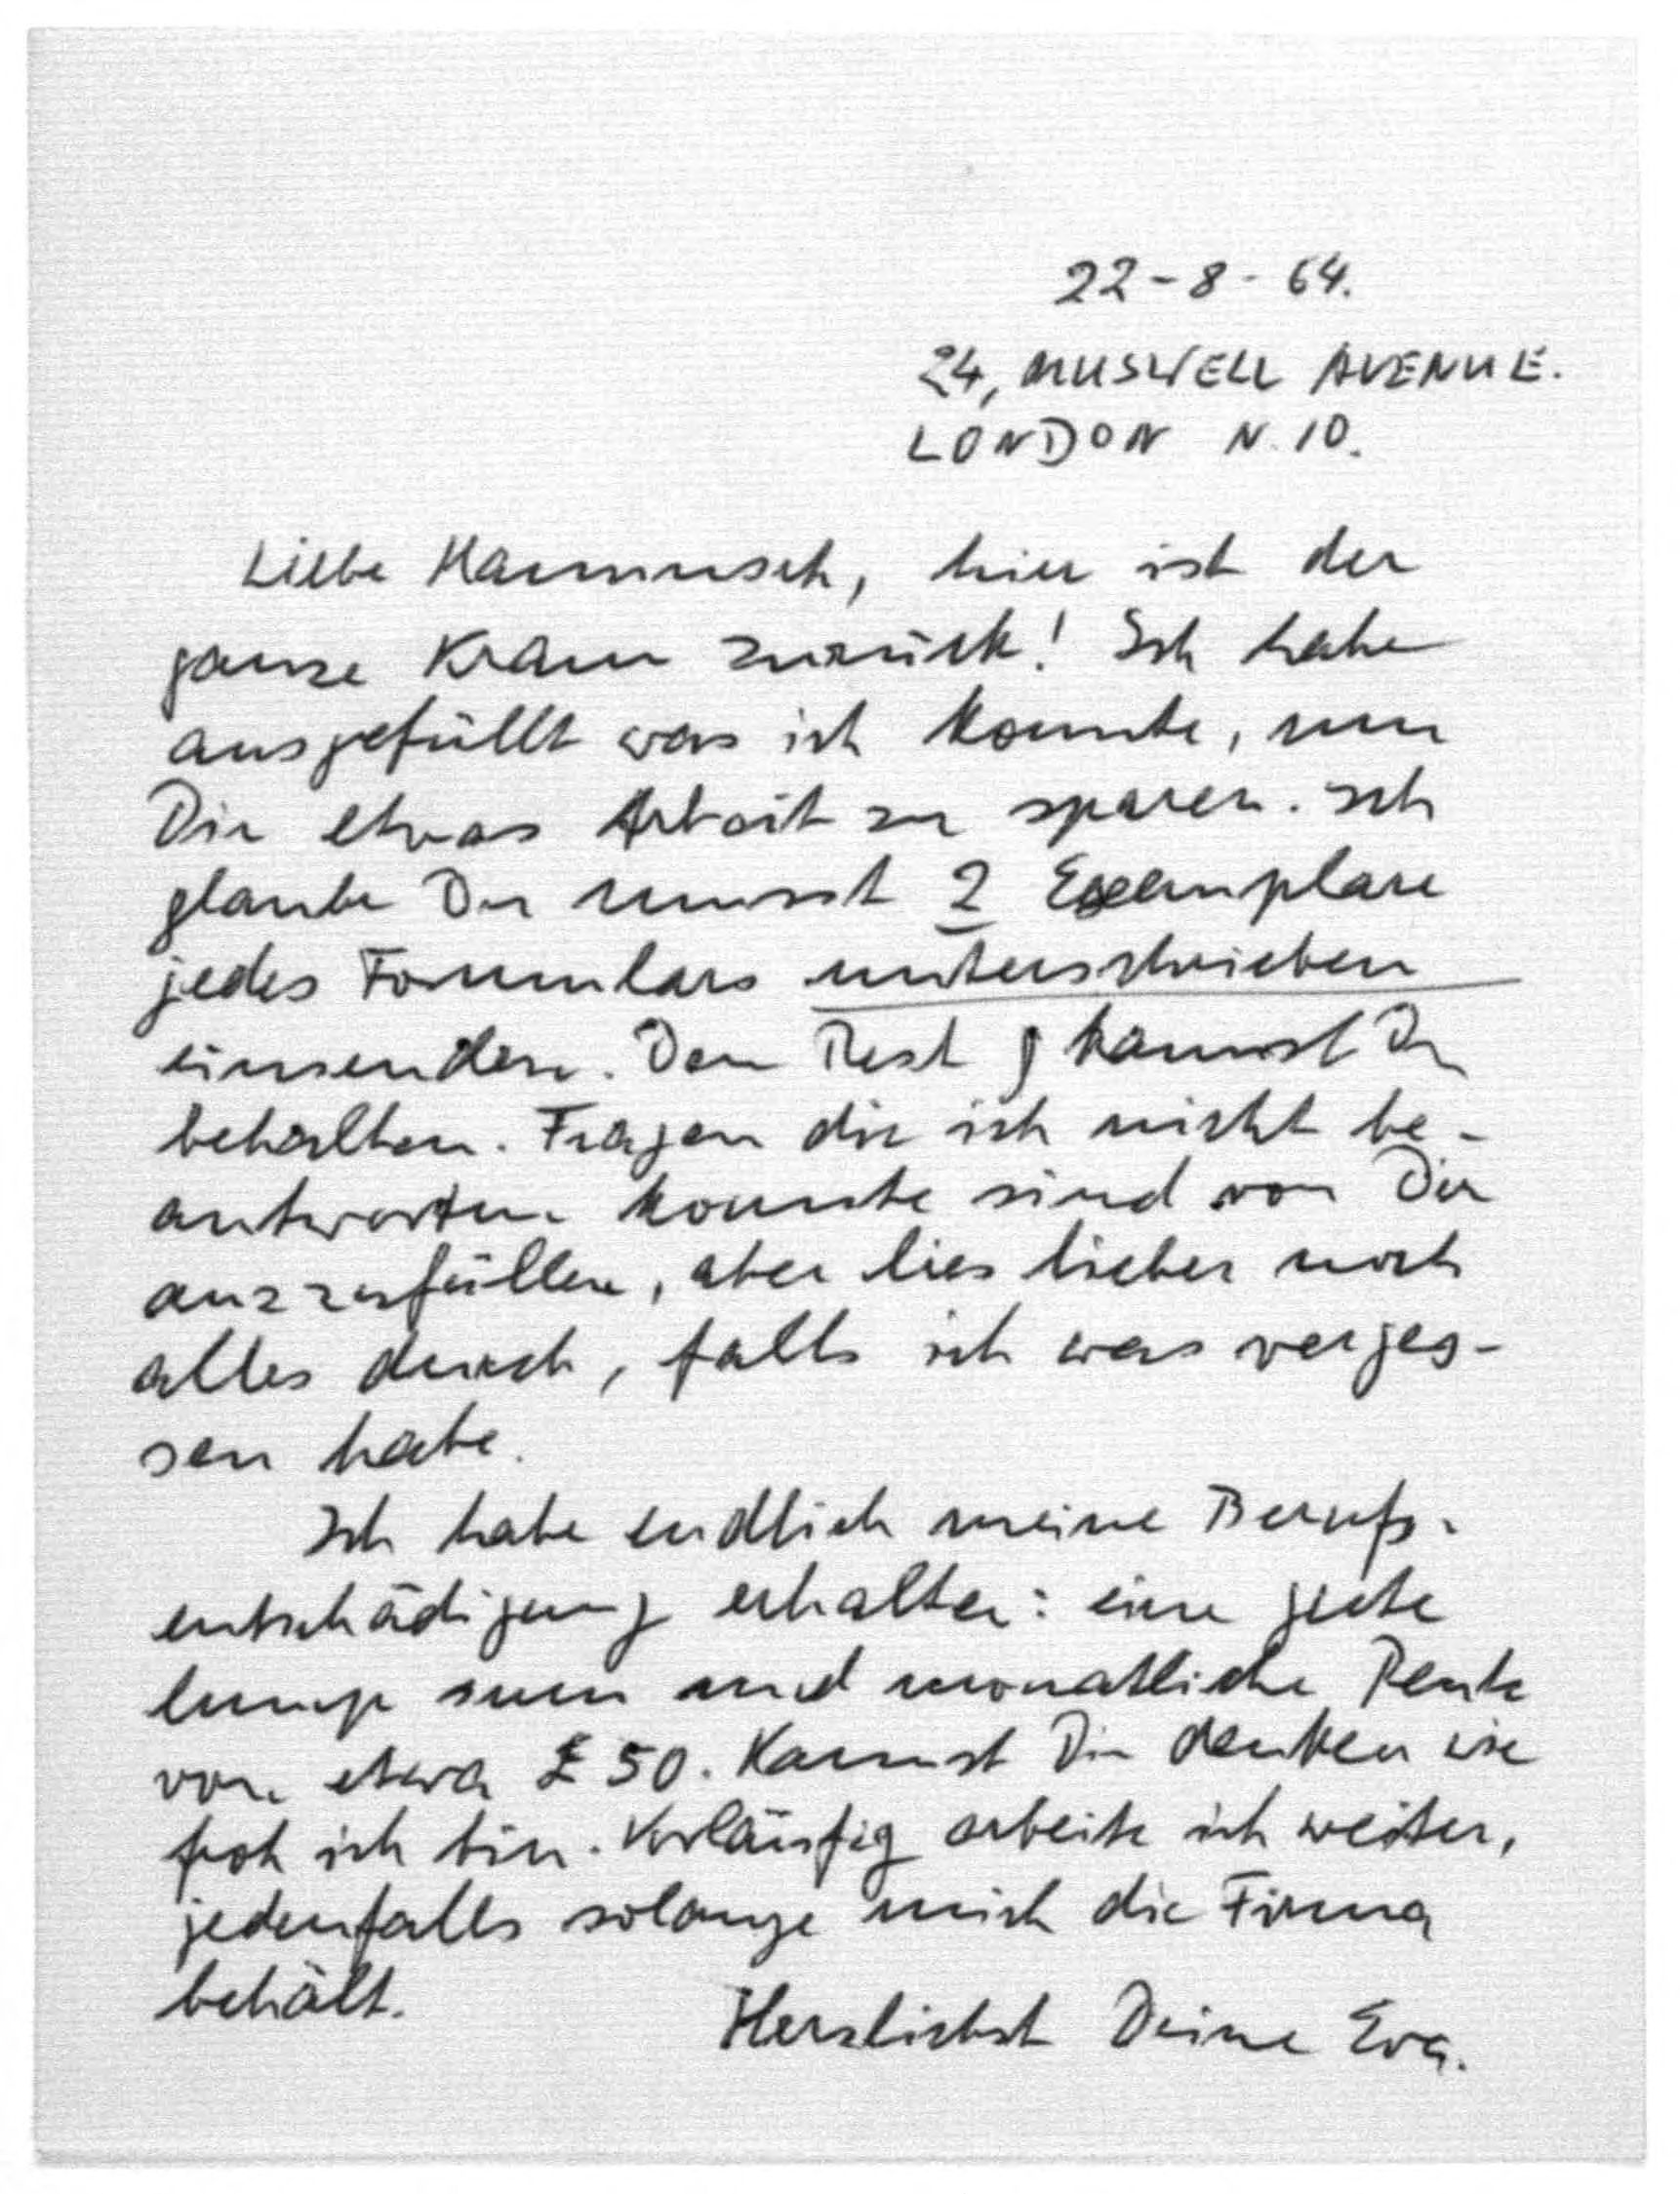 22-8-64.
24, MUSWELL AVENUE.
LONDON N.10.
Liebe Hannusch, hier ist der
ganze Kram zurück! Ich habe
ausgefüllt was ich konnte, um
Dir etwas Arbeit zu sparen. Ich
glaube Du musst 2 Exemplare
jedes Formulars unterschrieben
einsenden. Den Rest kannst Du
behalten. Fragen die ich nicht be-
antworten konnte sind von Dir
auszufüllen, aber lies lieber noch
alles durch, falls ich was verges-
sen habe.
Ich habe endlich meine Berufs-
entschädigung erhalten: eine gute
lump sum und monatliche Rente
von etwa £50. Kannst Dir denken wie
froh ich bin. Vorläufig arbeite ich weiter,
jedenfalls solange mich die Firma
behält.
Herzlichst Deine Eva.